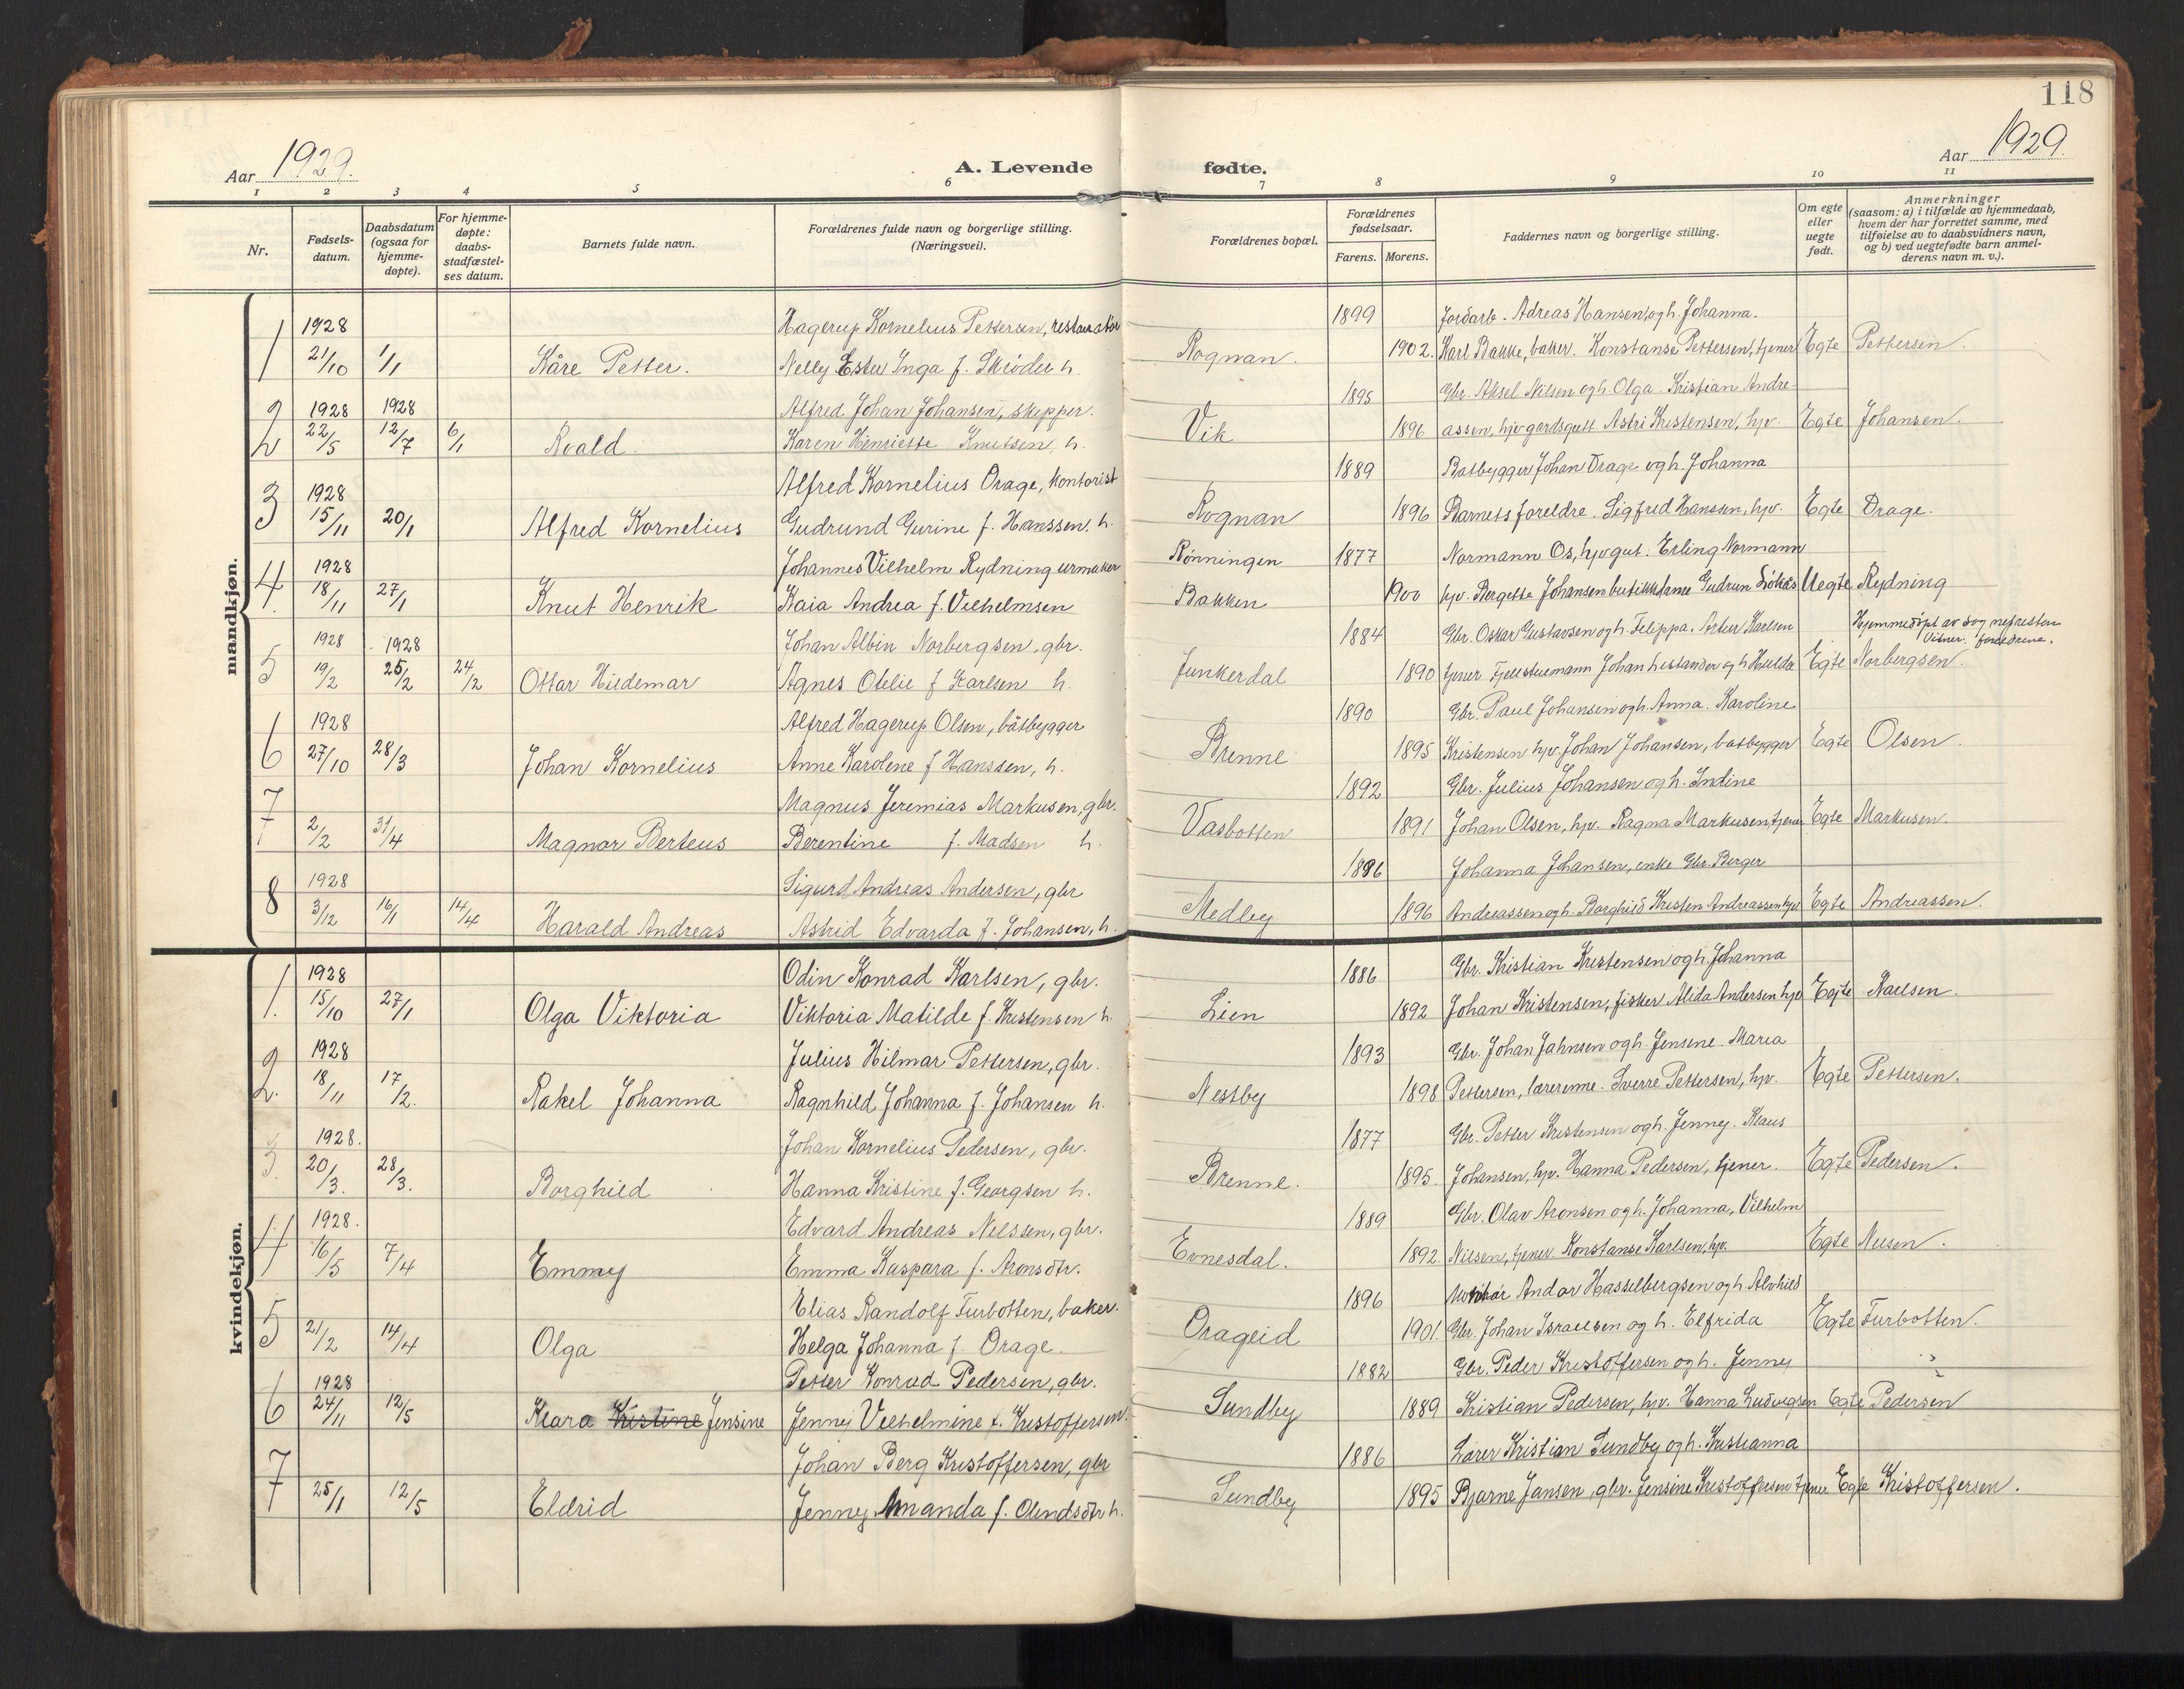 118
Aar 1929.
A. Levende
fødte.
Aar 1929.
1 2 3 4 5 6 7 8 9 10 11
Nr.
Fødsels-
datum.
Daabsdatum
(ogsaa for
hjemme-
døpte).
For hjemme-
døpte:
daabs-
stadfæstel-
ses datum.
Barnets fulde navn.
Forældrenes fulde navn og borgerlige stilling.
(Næringsvei).
Forældrenes bopæl.
Forældrenes
fødselsaar.
Farens. Morens.
Faddernes navn og borgerlige stilling.
Om egte
eller
uegte
født.
Anmerkninger
(saasom: a) i tilfælde av hjemmedaab,
hvem der har forrettet samme, med
tilføielse av to daabsvidners navn,
og b) ved uegtefødte barn anmel-
derens navn m. v.).
mandkjøn.
1 1928 Hagerup Kornelius Pettersen, restauratør 1899 Jordarb. Adreas Hansen og h. Johanna.
21/10 1/1 Kåre Petter. Nelly Ester Inga f. Skrøder h. Rognan. 1902. Karl Bakke, baker. Konstanse Pettersen, tjener Egte Pettersen.
2 1928 1928 Alfred Johan Johansen, skipper. 1895 Gbr. Aksel Nilsen og h. Olga. Kristian Andre-
22/5 12/7 6/1 Roald. Karen Henriette Knutsen, h. Vik 1896 assen, hjv. gardsgutt. Astri Kristensen, hjv. Egte Johansen.
3 1928 Alfred Kornelius Drage, kontorist 1889 Batbygger Johan Drage og h. Johanna
15/11 20/1 Alfred Kornelius Gudrund Gurine f. Hanssen. h. Rognan 1896 Barnets foreldre. Sigfred Hansen, hjv. Egte Drage.
4. 1928 Johannes Vilhelm Rydning urmaker Rønningen 1877 Normann Os, hjv gut. Erling Normann
18/11 27/1 Knut Henrik Kaia Andrea f. Vilhelmsen Bakken 1900 hjv. Bergette Johansen butikkdame Gudrun Løkås Uegte Rydning
5 1928 1928 Johan Albin Norbergsen, gbr. 1884 Gbr. Oskar Gustavsen og h. Filippa. Artur Karlsen Hjemmedøpt av sognepresten
Vitner: foreldrene.
19/2 25/2 24/2 Ottar Hildemar Agnes Otelie f Karlsen h. Junkerdal 1890 tjener Fjellstuemann Johan Lestander og h Hulda Egte Norbergsen.
6 1928 Alfred Hagerup Olsen, båtbygger 1890 Gbr. Paul Johansen og h. Anna. Karoline
27/10 28/3 Johan Kornelius Anne Karolene f Hanssen, h. Brenne 1895 Kristensen hjv. Johan Johansen, batbygger Egte Olsen.
7 Magnus Jeremias Markusen, gbr. 1892 Gbr. Julius Johansen og h. Indine
2/2 31/4 Magnar Berteus Berentine f. Madsen h. Vasbotten 1891 Johan Olsen, hjv. Ragna Markusen, tjener Egte Markusen.
8 1928 Sigurd Andreas Andersen, gbr 1896 Johanna Johansen, enke Gbr. Berger
3/12 16/1 14/4 Harald Andreas Astrid Edvarda f. Johansen, h. Medby 1896 Andreassen og h. Borghild Kristen Andreassen hjv Egte Andreassen.
kvindekjøn.
1. 1928 Odin Konrad Karlsen, gbr. 1886 Gbr. Kristian Kristensen og h. Johanna
15/10 27/1 Olga Viktoria Viktoria Matilde f. Kristensen h. Lien 1892 Johan Kristensen, fisker Alida Andersen hjv Egte Karlsen.
2. 1928 Julius Hilmar Pettersen, gbr. 1893 Gbr. Johan Jahnsen og h. Jensine. Maria
18/11 17/2. Rakel Johanna Ragnhild Johanna f. Johansen h. Nestby 1898 Pettersen, lærerinne. Sverre Pettersen, hjv. Egte Pettersen.
3. 1928. Johan Kornelius Pedersen, gbr. 1877 Gbr. Petter Kristensen og h. Jenny. Klaus
20/3. 28/3. Borghild Hanna Kristine f. Georgsen h. Brenne. 1895. Johansen, hjv. Hanna Pedersen, tjener. Egte Pedersen.
4 1928. Edvard Andreas Nilssen, gbr. 1889 Gbr. Olav Aronsen og h. Johanna, Vilhelm
16/5 7/4 Emmy Emma Kaspara f. Aronsdtr. Evnesdal. 1892. Nilsen, tjener Konstanse Karlsen, hjv. Egte Nilsen.
5 Elias Randolf Furbotten, baker. 1896 Andor Hasselbergsen og h. Alvhild
21/2 14/4 Olga Helga Johanna f. Drage. Drageid 1901. Gbr. Johan Israelsen og h. Elfrida Egte Furbotten.
6 1928 Petter Konrad Pedersen, gbr. 1882 Gbr. Peder Kristoffersen og h. Jenny
24/11 12/5 Klara Kristine Jensine Jenny Vilhelmine f. Kristoffersen. Sundby 1889 Kristian Pedersen, hjv. Hanna Ludvigsen Egte Pedersen
7 Johan Berg Kristoffersen, gbr 1886 Lærer Kristian Sundby og h. Kristianna
25/1 12/5 Eldrid Jenny Amanda f. Olundsdtr h. Sundby 1895 Bjarne Jansen, gbr. Jensine Kristoffersen tjener Egte Kristoffersen.